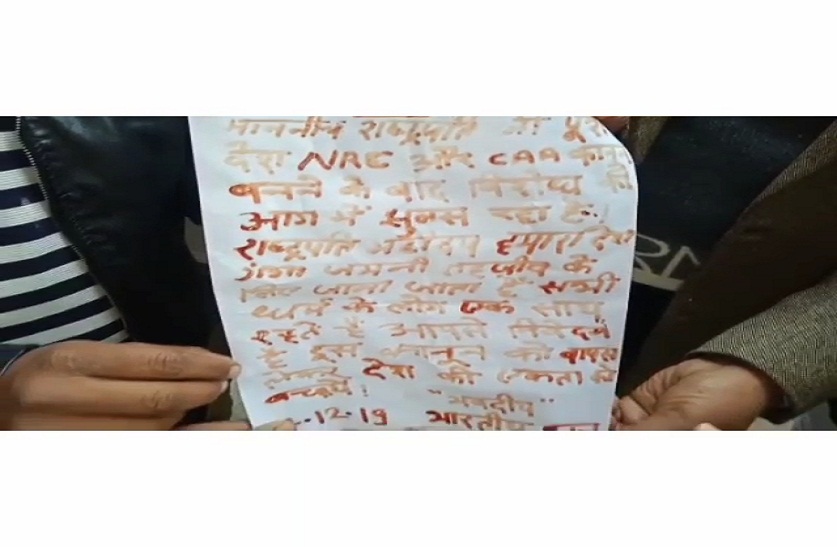 माननीय राष्ट्रपति जी पूरा
देश NRC और CAA कानून
बनने के बाद विरोध की
आग में झुलस रहा है।
राष्ट्रपति महोदय हमारा देश
गंगा जमनी तहजीब के
लिए जाना जाता है सभी
धर्म के लोग एक साथ
रहते हैं आपसे
इस कानून को वापस
देश की एकता को
बचायें।
"भवदीय"
.12.19 भारतीय